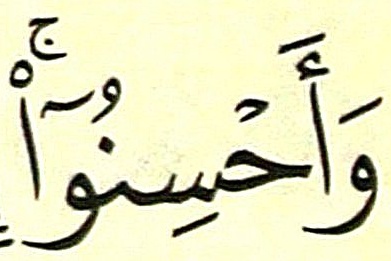 وَأَحۡسِنُوٓاْۚ